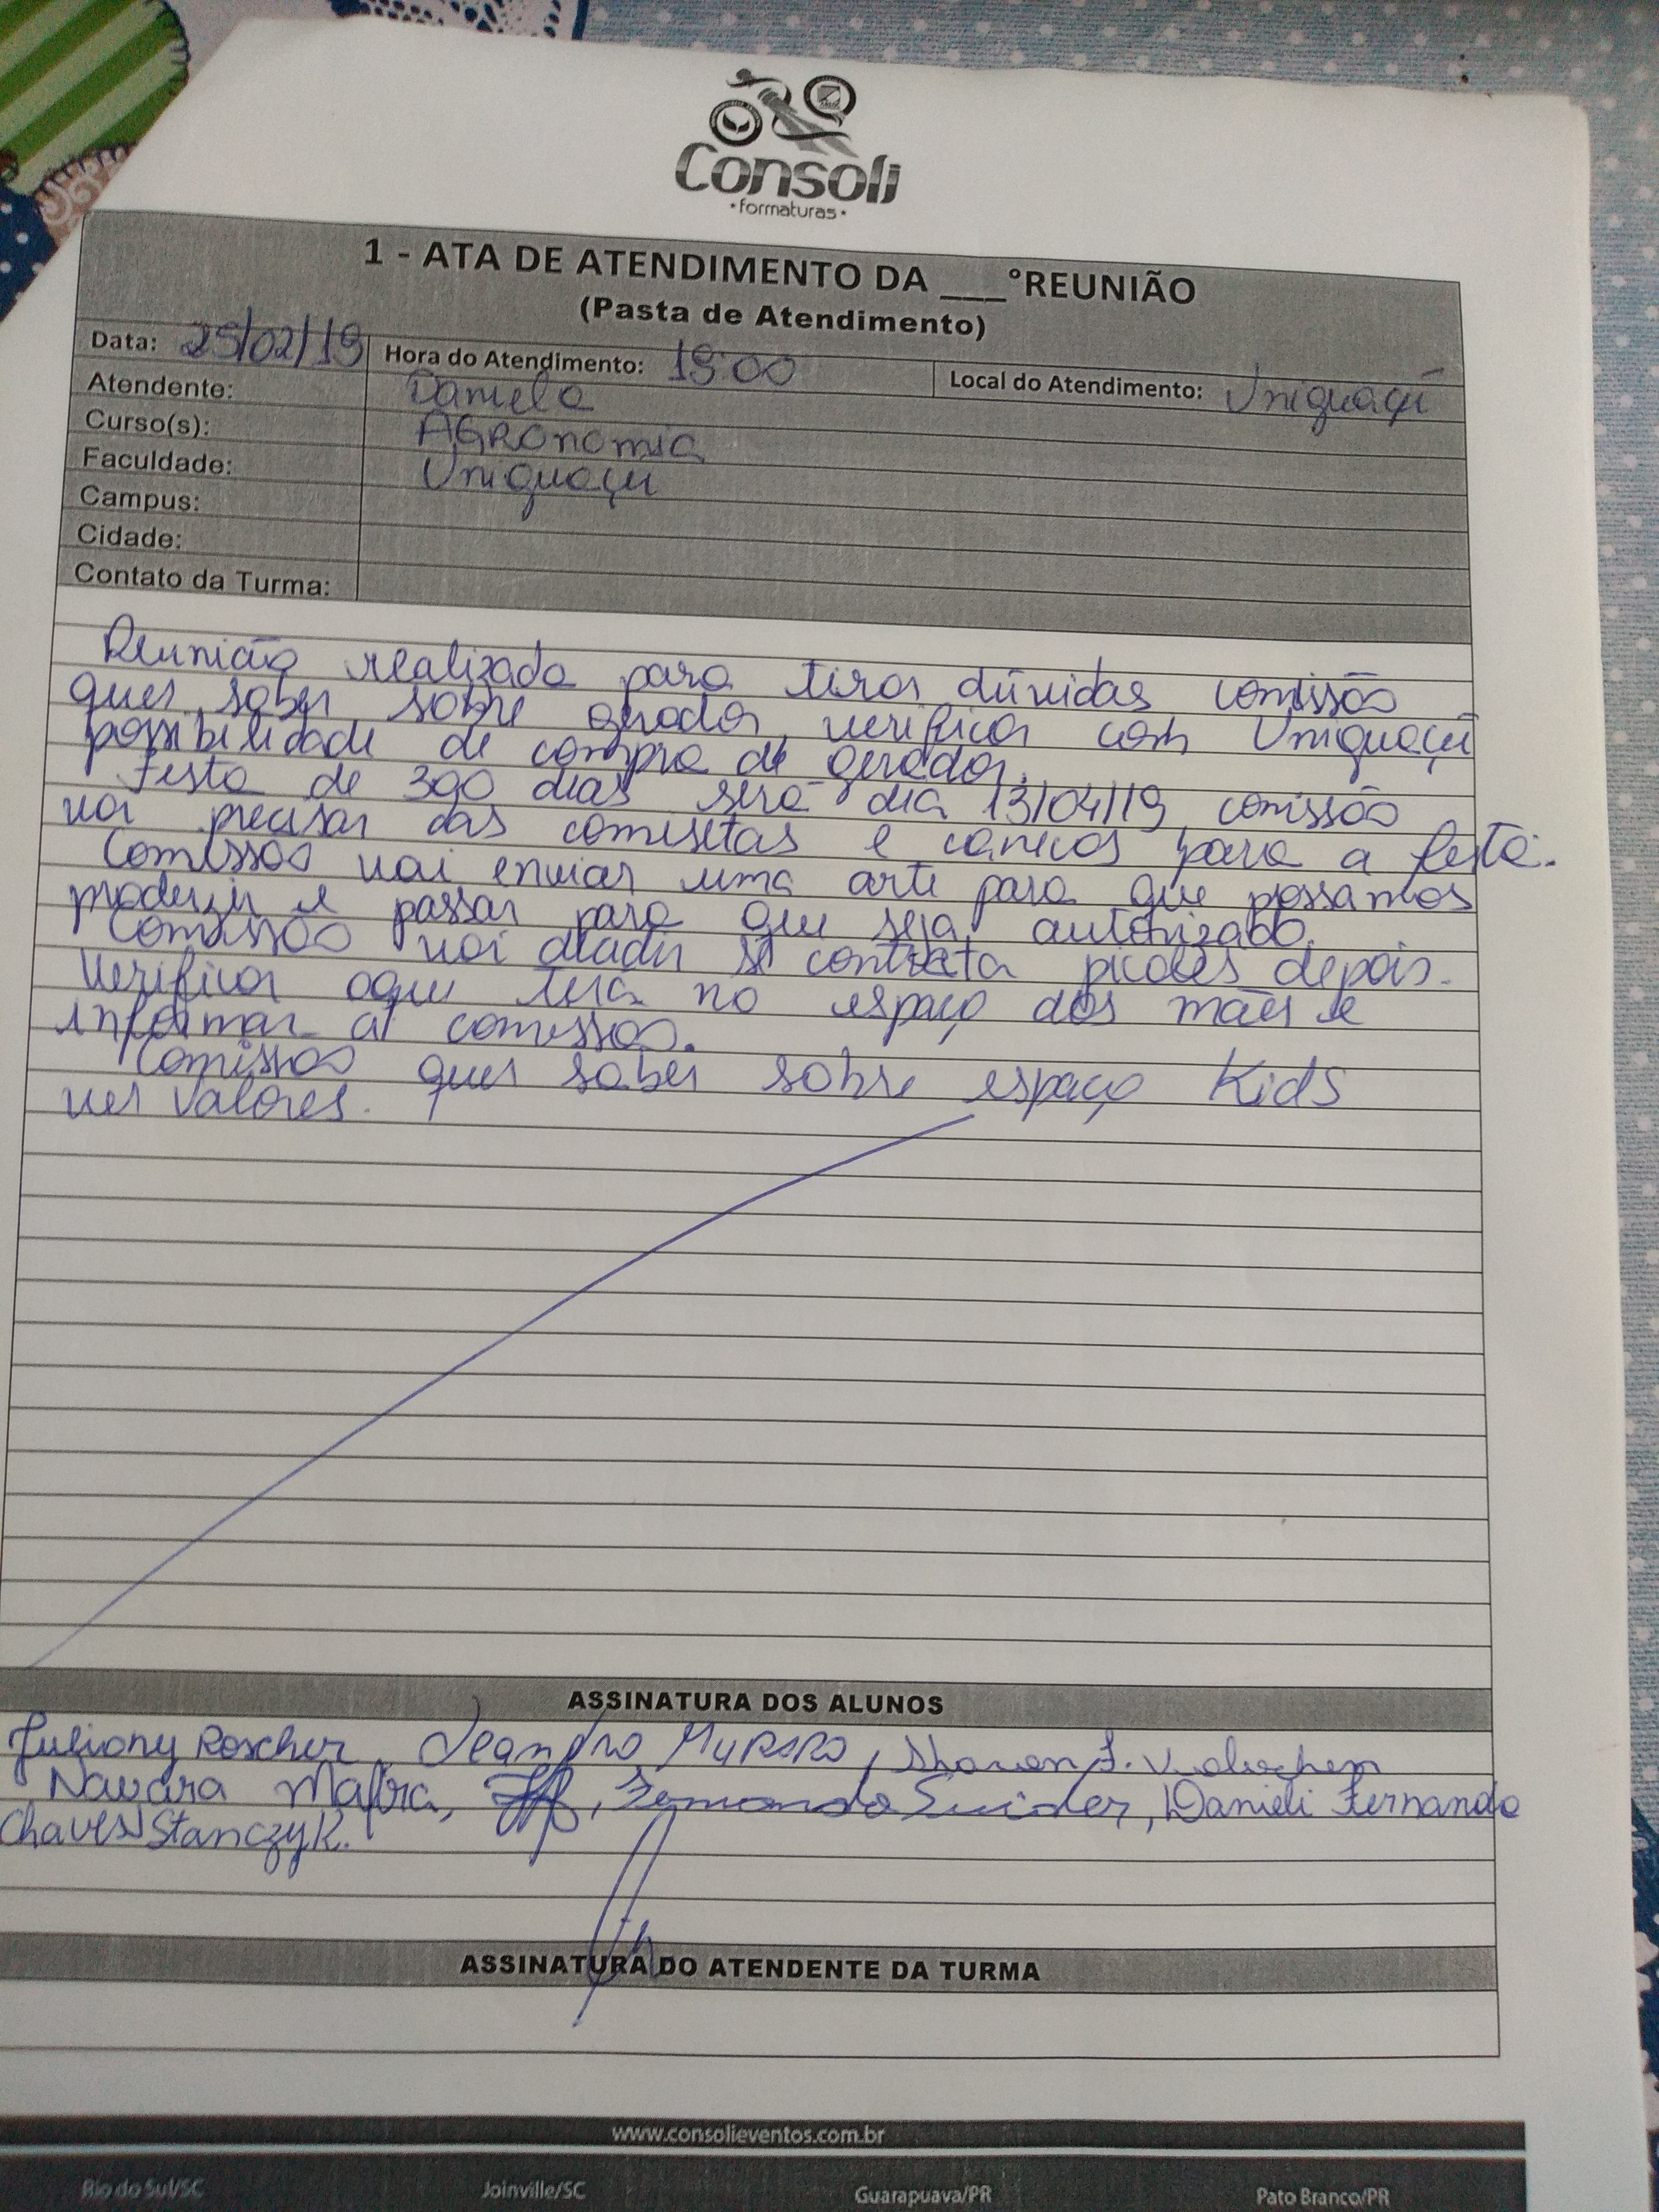 Consoli
formaturas
1 - ATA DE ATENDIMENTO DA ___°REUNIÃO
(Pasta de Atendimento)
Data: 25/02/19 Hora do Atendimento: 19:00 Local do Atendimento: Uniguaçu
Atendente: Daniela
Curso(s): AGRonomia
Faculdade: Uniguaçu
Campus:
Cidade:
Contato da Turma:
Reunião realizada para tirar dúvidas comissão
quer saber sobre gerador, verificar com Uniguaçu
possibilidade de compra de gerador.
Festa de 300 dias será dia 13/04/19 comissão
vai precisar das camisetas e canecas para a festa.
Comissão vai enviar uma arte para que possamos
produzir e passar para que seja autorizado.
Comissão vai decidir se contrata picolés depois.
Verificar oque terá no espaço das mães e
informar a comissão.
Comissão quer saber sobre espaço Kids
ver valores.
ASSINATURA DOS ALUNOS
Juliany Roscher, Leandro Muraro, Sharon
Nayara Mafra, Fernanda, Danieli Fernanda
Chaves Stanczyk.
ASSINATURA DO ATENDENTE DA TURMA
www.consolieventos.com.br
Rio do Sul/SC Joinville/SC Guarapuava/PR Pato Branco/PR